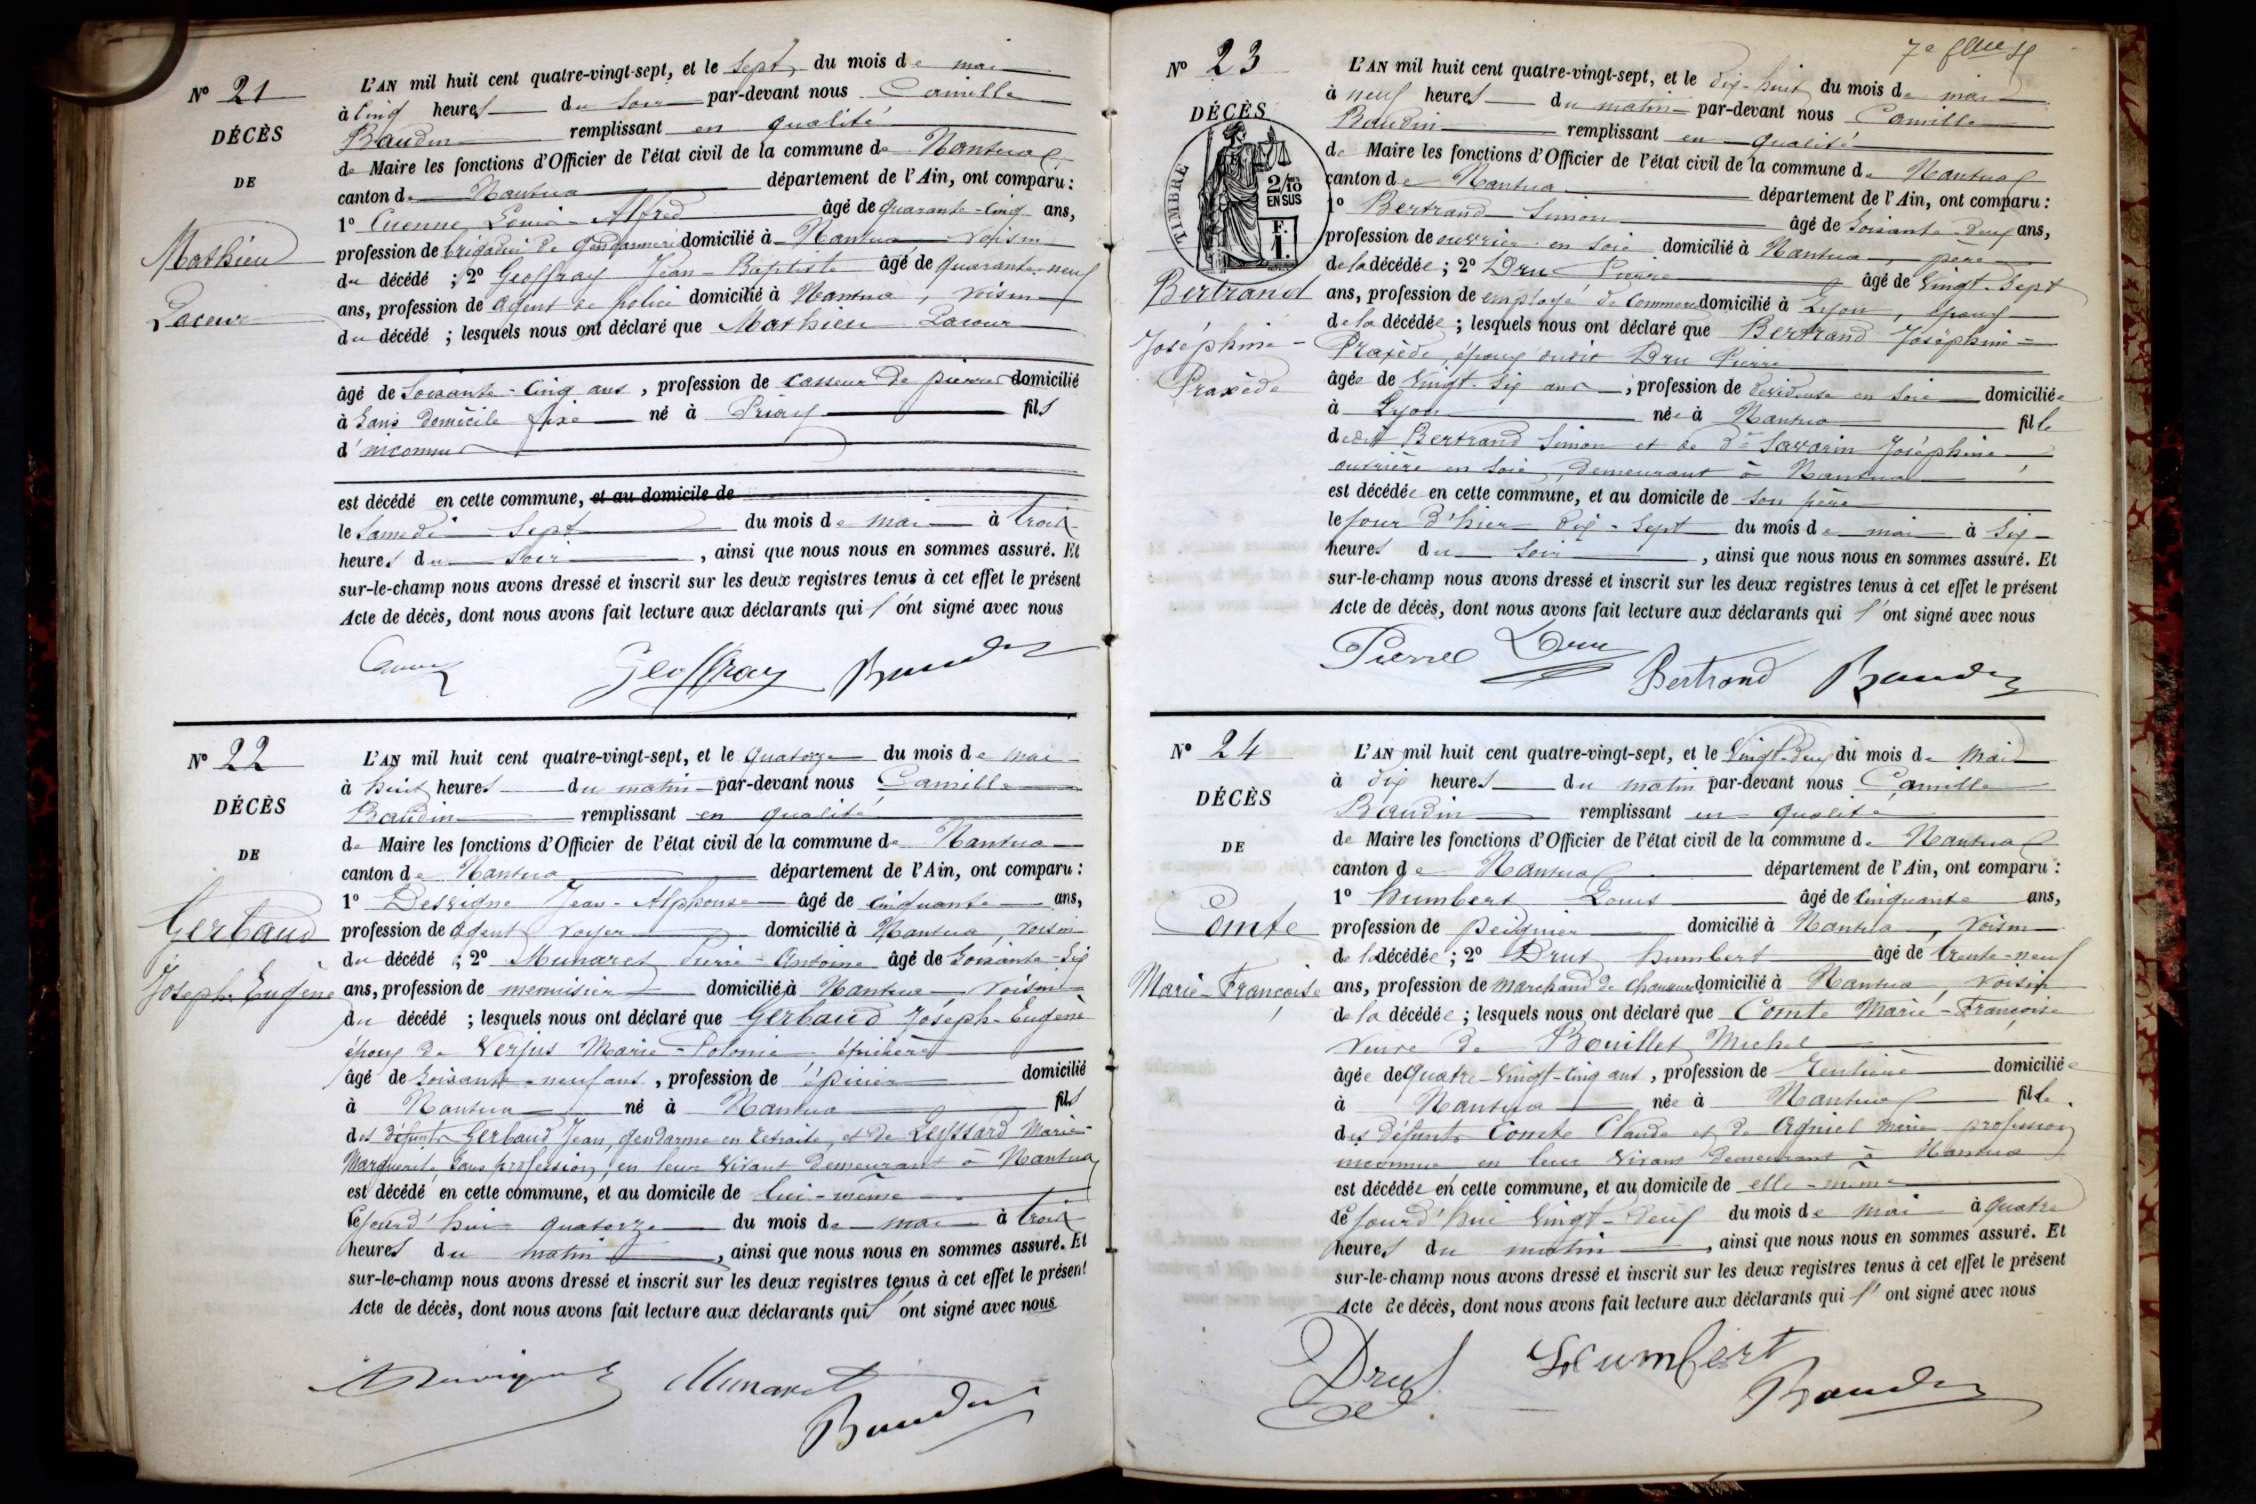 N° 21
DÉCÈS
DE
Mathieu
Lacour
L'AN mil huit cent quatre-vingt-sept, et le sept du mois de mai
à cinq heures du soir par-devant nous Camille
Baudin remplissant en qualité
de Maire les fonctions d'Officier de l'état civil de la commune de Nantua
canton de Nantua département de l'Ain, ont comparu :
1° Cuenne Louis-Alfred âgé de quarante-cinq ans,
profession de brigadier de gendarmerie domicilié à Nantua voisin
du décédé ; 2° Geoffray Jean-Baptiste âgé de quarante-neuf
ans, profession de agent de police domicilié à Nantua, voisin
du décédé ; lesquels nous ont déclaré que Mathieu Lacour
âgé de soixante-cinq ans, profession de casseur de pierres domicilié
à sans domicile fixe né à Priay fils
d'inconnus
est décédé en cette commune, et au domicile de
le samedi sept du mois de mai à trois
heures du soir, ainsi que nous nous en sommes assuré. Et
sur-le-champ nous avons dressé et inscrit sur les deux registres tenus à cet effet le présent
Acte de décès, dont nous avons fait lecture aux déclarants qui l'ont signé avec nous
Geoffray Baudin
N° 22
DÉCÈS
DE
Gerbaud
Joseph Eugène
L'AN mil huit cent quatre-vingt-sept, et le quatorze du mois de mai
à huit heures du matin par-devant nous Camille
Baudin remplissant en qualité
de Maire les fonctions d'Officier de l'état civil de la commune de Nantua
canton de Nantua département de l'Ain, ont comparu :
1° Desvigne Jean-Alphonse âgé de cinquante ans,
profession de agent voyer domicilié à Nantua, voisin
du décédé ; 2° Munaret Pierre-Antoine âgé de soixante-six
ans, profession de menuisier domicilié à Nantua voisin
du décédé ; lesquels nous ont déclaré que Gerbaud Joseph-Eugène
époux de Verjus Marie-Polonie épicière
âgé de soixante-neuf ans, profession de épicier domicilié
à Nantua né à Nantua fils
des défunts Gerbaud Jean, gendarme en retraite, et de Leyssard Marie-
Marguerite sans profession, en leur vivant demeurant à Nantua
est décédé en cette commune, et au domicile de lui-même
Cejourd'hui quatorze du mois de mai à trois
heures du matin, ainsi que nous nous en sommes assuré. Et
sur-le-champ nous avons dressé et inscrit sur les deux registres tenus à cet effet le présent
Acte de décès, dont nous avons fait lecture aux déclarants qui l'ont signé avec nous
Munaret
Baudin
7e
N° 23
DÉCÈS
TIMBRE
2/10 EN SUS
F. 1.
Bertrand
Joséphine-
Praxède
L'AN mil huit cent quatre-vingt-sept, et le dix-huit du mois de mai
à neuf heures du matin par-devant nous Camille
Baudin remplissant en qualité
de Maire les fonctions d'Officier de l'état civil de la commune de Nantua
canton de Nantua département de l'Ain, ont comparu :
1° Bertrand Simon âgé de soixante-deux ans,
profession de ouvrier en soie domicilié à Nantua, père
de la décédée ; 2° Dru Pierre âgé de vingt-sept
ans, profession de employé de commerce domicilié à Lyon, époux
de la décédée ; lesquels nous ont déclaré que Bertrand Joséphine-
Praxède, épouse dudit Dru Pierre
âgée de vingt-six ans, profession de dévideuse en soie domiciliée
à Lyon née à Nantua fille
dudit Bertrand Simon et de De Savarin Joséphine
ouvrière en soie, demeurant à Nantua
est décédée en cette commune, et au domicile de son père
le jour d'hier dix-sept du mois de mai à six
heures du soir, ainsi que nous nous en sommes assuré. Et
sur-le-champ nous avons dressé et inscrit sur les deux registres tenus à cet effet le présent
Acte de décès, dont nous avons fait lecture aux déclarants qui l'ont signé avec nous
Pierre Dru
Bertrand Baudin
N° 24
DÉCÈS
DE
Comte
Marie-Françoise
L'AN mil huit cent quatre-vingt-sept, et le vingt-deux du mois de mai
à dix heures du matin par-devant nous Camille
Baudin remplissant en qualité
de Maire les fonctions d'Officier de l'état civil de la commune de Nantua
canton de Nantua département de l'Ain, ont comparu :
1° Humbert Louis âgé de cinquante ans,
profession de peignier domicilié à Nantua, voisin
de la décédée ; 2° Drut Humbert âgé de trente-neuf
ans, profession de marchand de chaussures domicilié à Nantua, voisin
de la décédée ; lesquels nous ont déclaré que Comte Marie-Françoise
veuve de Bouillet Michel
âgée de quatre-vingt-cinq ans, profession de rentière domiciliée
à Nantua née à Nantua fille
des défunts Comte Claude et de Agniel Marie profession
inconnue en leur vivant demeurant à Nantua
est décédée en cette commune, et au domicile de elle-même
Cejourd'hui vingt-deux du mois de mai à quatre
heures du matin, ainsi que nous nous en sommes assuré. Et
sur-le-champ nous avons dressé et inscrit sur les deux registres tenus à cet effet le présent
Acte de décès, dont nous avons fait lecture aux déclarants qui l'ont signé avec nous
Drut Humbert
Baudin